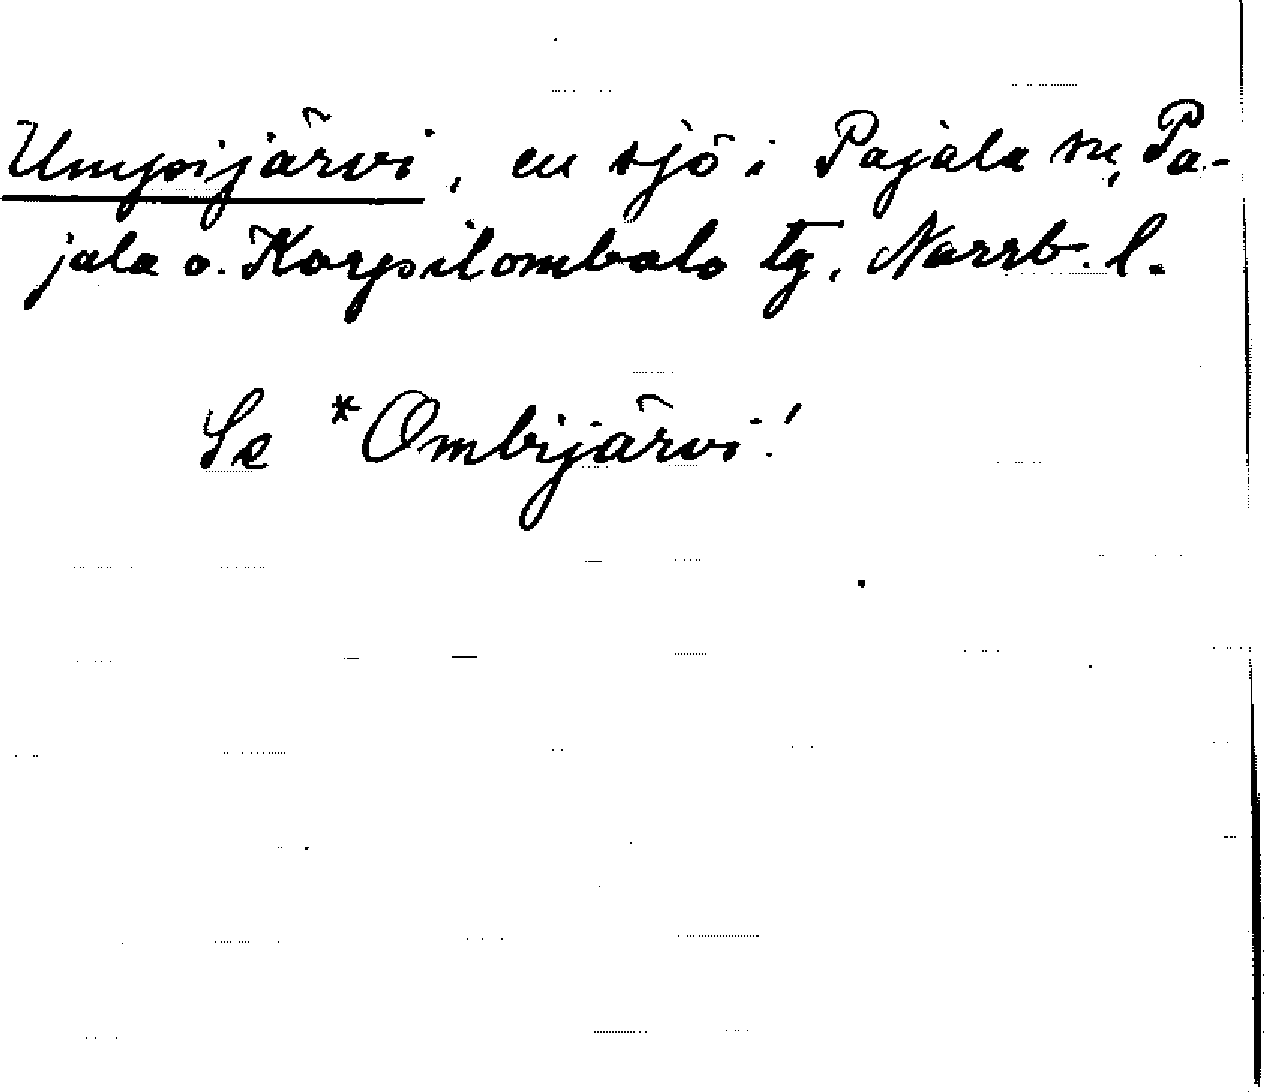 Umpijärvi, en sjö i Pajala sn, Pa-
jala o. Korpilombolo tg, Norrb. l.
Se *Ombijärvi!